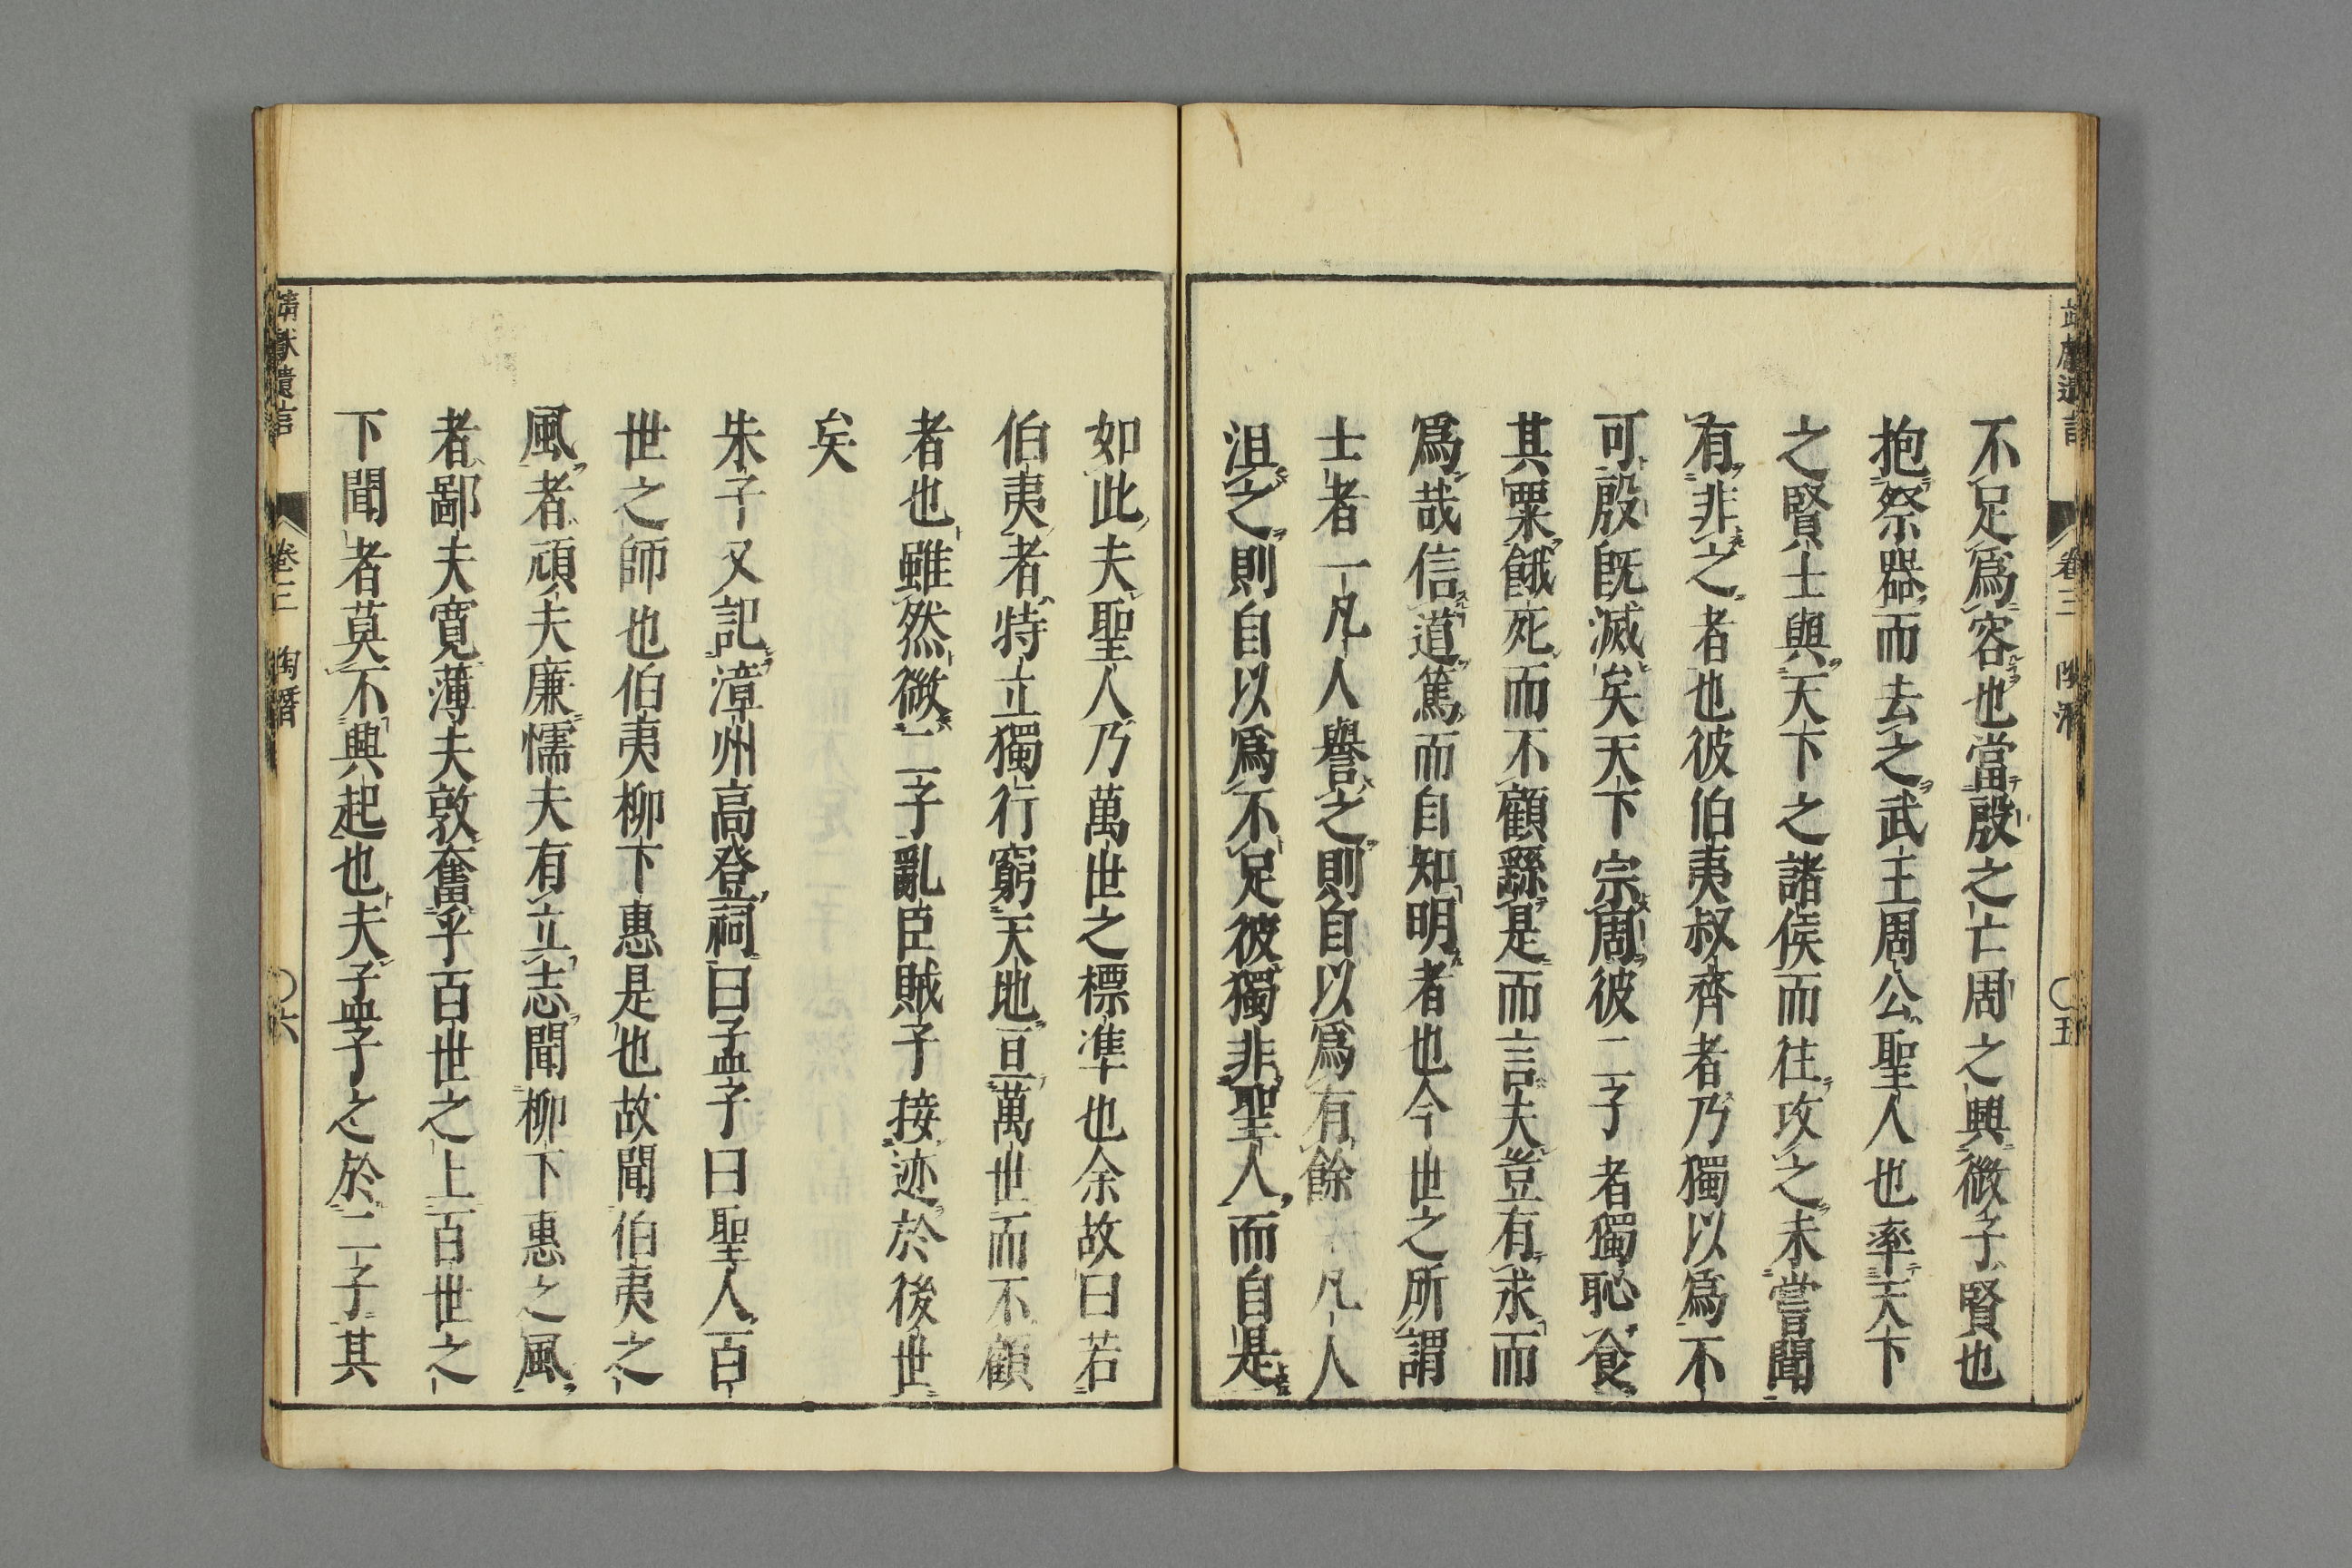 靖獻遺言 卷三 陶潛 〇五
不足爲容也當殷之亡周之興微子賢也
抱祭器而去之武王周公聖人也率天下
之賢士與天下之諸侯而往攻之未嘗聞
有非之者也彼伯夷叔齊者乃獨以爲不
可殷旣滅矣天下宗周彼二子者獨恥食
其粟餓死而不顧繇是而言夫豈有求而
爲哉信道篤而自知明者也今世之所謂
士者一凡人譽之則自以爲有餘一凡人
沮之則自以爲不足彼獨非聖人而自是
如此夫聖人乃萬世之標準也余故曰若
伯夷者特立獨行窮天地亘萬世而不顧
者也雖然微二子亂臣賊子接迹於後世
矣
朱子又記漳州高登祠曰孟子曰聖人百
世之師也伯夷柳下惠是也故聞伯夷之
風者頑夫廉懦夫有立志聞柳下惠之風
者鄙夫寬薄夫敦奮乎百世之上百世之
下聞者莫不興起也夫孟子之於二子其
靖獻遺言 卷三 陶潛 〇六